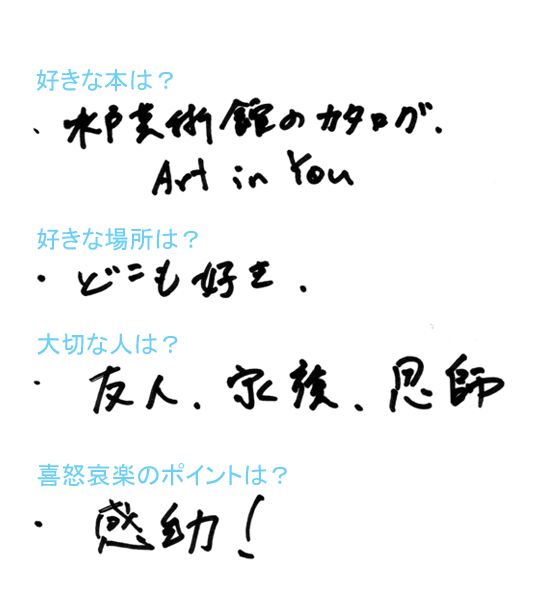 好きな本は？
・水戸芸術館のカタログ.
Art in You
好きな場所は？
・どこも好き.
大切な人は？
・友人、家族、恩師
喜怒哀楽のポイントは？
・感動！